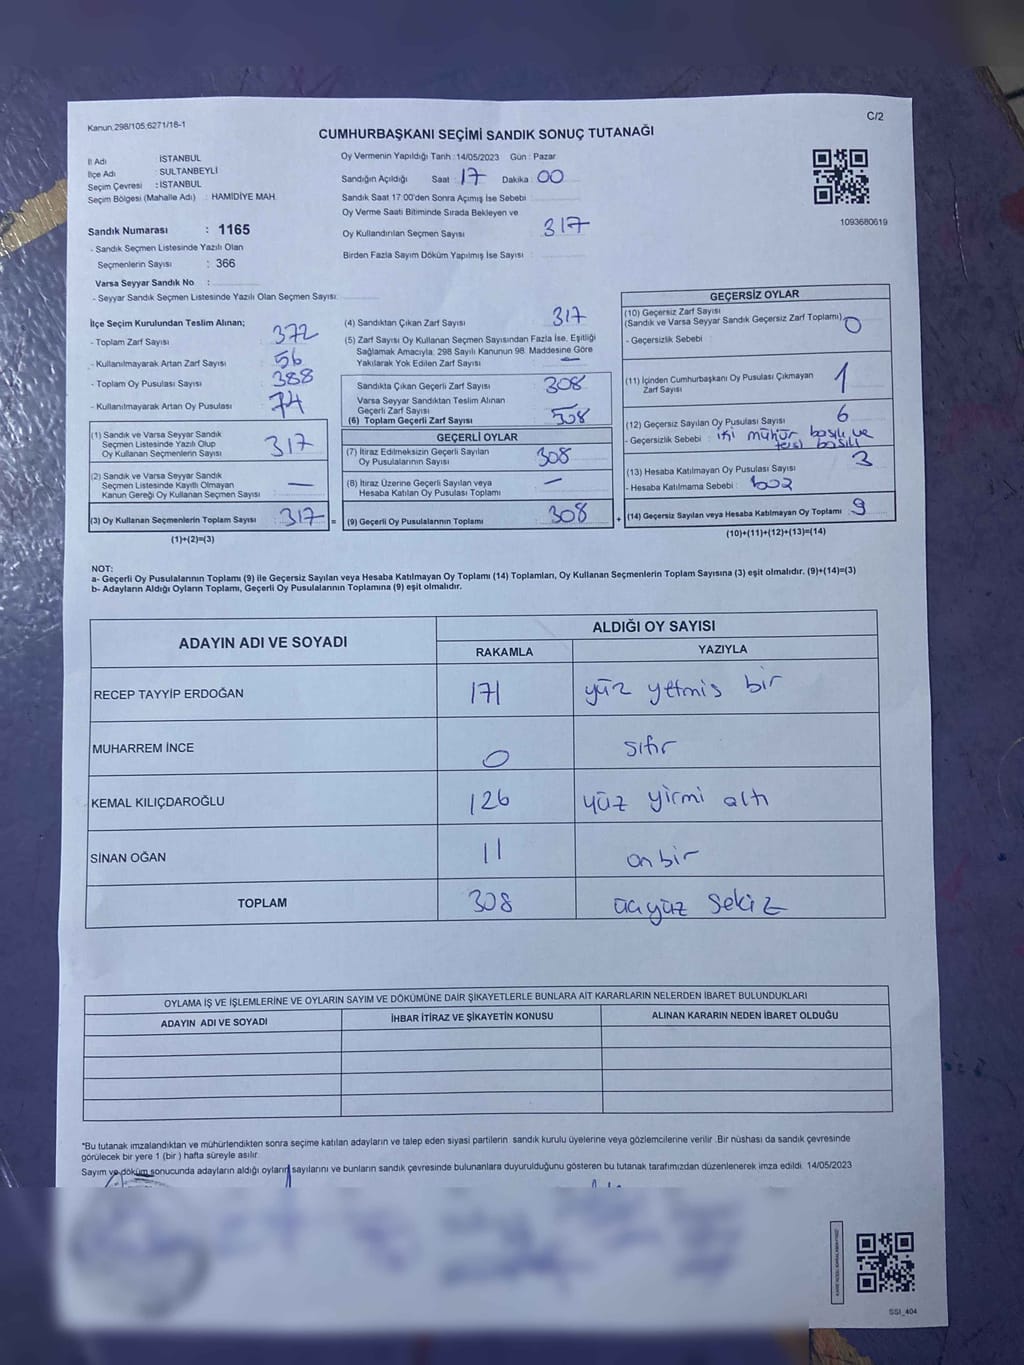 Kanun.298/105.6271/16-1
C/2
CUMHURBAŞKANI SEÇİMİ SANDIK SONUÇ TUTANAĞI
İl Adı : İSTANBUL
İlçe Adı : SULTANBEYLİ
Seçim Çevresi : İSTANBUL
Seçim Bölgesi (Mahalle Adı) : HAMİDİYE MAH.
Sandık Numarası : 1165
- Sandık Seçmen Listesinde Yazılı Olan
Seçmenlerin Sayısı : 366
Varsa Seyyar Sandık No :
- Seyyar Sandık Seçmen Listesinde Yazılı Olan Seçmen Sayısı:
Oy Vermenin Yapıldığı Tarih :14/05/2023 Gün : Pazar
Sandığın Açıldığı Saat : 17 Dakika : 00
Sandık Saat 17:00'den Sonra Açımış İse Sebebi :
Oy Verme Saati Bitiminde Sırada Bekleyen ve
Oy Kullandırılan Seçmen Sayısı : 317
Birden Fazla Sayım Döküm Yapılmış İse Sayısı :
1093680619
İlçe Seçim Kurulundan Teslim Alınan;
- Toplam Zarf Sayısı : 372
- Kullanılmayarak Artan Zarf Sayısı : 56
- Toplam Oy Pusulası Sayısı : 388
- Kullanılmayarak Artan Oy Pusulası : 74
(1) Sandık ve Varsa Seyyar Sandık
Seçmen Listesinde Yazılı Olup
Oy Kullanan Seçmenlerin Sayısı : 317
(2) Sandık ve Varsa Seyyar Sandık
Seçmen Listesinde Kayıtlı Olmayan
Kanun Gereği Oy Kullanan Seçmen Sayısı : —
(3) Oy Kullanan Seçmenlerin Toplam Sayısı : 317 =
(1)+(2)=(3)
(4) Sandıktan Çıkan Zarf Sayısı : 317
(5) Zarf Sayısı Oy Kullanan Seçmen Sayısından Fazla İse, Eşitliği
Sağlamak Amacıyla; 298 Sayılı Kanunun 98. Maddesine Göre
Yakılarak Yok Edilen Zarf Sayısı : —
Sandıkta Çıkan Geçerli Zarf Sayısı : 308
Varsa Seyyar Sandıktan Teslim Alınan
Geçerli Zarf Sayısı :
(6) Toplam Geçerli Zarf Sayısı : 508
GEÇERLİ OYLAR
(7) İtiraz Edilmeksizin Geçerli Sayılan
Oy Pusulalarının Sayısı : 308
(8) İtiraz Üzerine Geçerli Sayılan veya
Hesaba Katılan Oy Pusulası Toplamı : —
(9) Geçerli Oy Pusulalarının Toplamı : 308 +
GEÇERSİZ OYLAR
(10) Geçersiz Zarf Sayısı
(Sandık ve Varsa Seyyar Sandık Geçersiz Zarf Toplamı): 0
- Geçersizlik Sebebi :
(11) İçinden Cumhurbaşkanı Oy Pusulası Çıkmayan
Zarf Sayısı : 1
(12) Geçersiz Sayılan Oy Pusulası Sayısı : 6
- Geçersizlik Sebebi : iki mühür basılı ve
tersi basılı
(13) Hesaba Katılmayan Oy Pusulası Sayısı : 3
- Hesaba Katılmama Sebebi :
(14) Geçersiz Sayılan veya Hesaba Katılmayan Oy Toplamı : 9
(10)+(11)+(12)+(13)=(14)
NOT:
a- Geçerli Oy Pusulalarının Toplamı (9) ile Geçersiz Sayılan veya Hesaba Katılmayan Oy Toplamı (14) Toplamları, Oy Kullanan Seçmenlerin Toplam Sayısına (3) eşit olmalıdır. (9)+(14)=(3)
b- Adayların Aldığı Oyların Toplamı, Geçerli Oy Pusulalarının Toplamına (9) eşit olmalıdır.
ADAYIN ADI VE SOYADI ALDIĞI OY SAYISI
RAKAMLA YAZIYLA
RECEP TAYYİP ERDOĞAN 171 yüz yetmis bir
MUHARREM İNCE 0 sıfır
KEMAL KILIÇDAROĞLU 126 yüz yirmi altı
SİNAN OĞAN 11 on bir
TOPLAM 308 üçyüz sekiz
OYLAMA İŞ VE İŞLEMLERİNE VE OYLARIN SAYIM VE DÖKÜMÜNE DAİR ŞİKAYETLERLE BUNLARA AİT KARARLARIN NELERDEN İBARET BULUNDUKLARI
ADAYIN ADI VE SOYADI İHBAR İTİRAZ VE ŞİKAYETİN KONUSU ALINAN KARARIN NEDEN İBARET OLDUĞU
*Bu tutanak imzalandıktan ve mühürlendikten sonra seçime katılan adayların ve talep eden siyasi partilerin. sandık kurulu üyelerine veya gözlemcilerine verilir .Bir nüshası da sandık çevresinde
görülecek bir yere 1 (bir) hafta süreyle asılır.
Sayım ve döküm sonucunda adayların aldığı oyların sayılarını ve bunların sandık çevresinde bulunanlara duyurulduğunu gösteren bu tutanak tarafımızdan düzenlenerek imza edildi. 14/05/2023
SSI_404